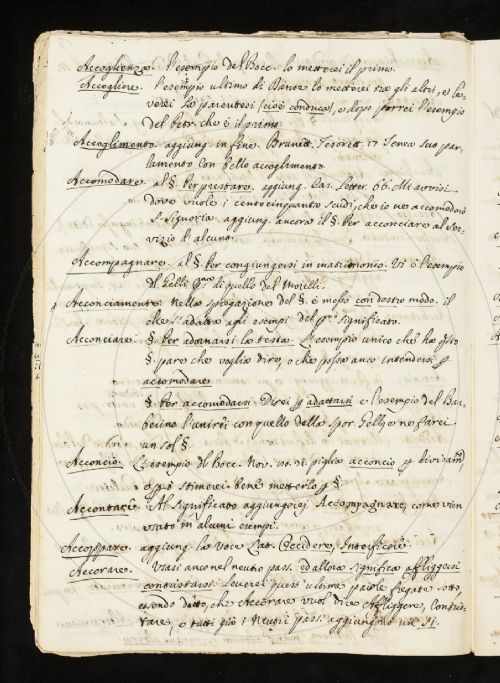 Accoglienza. l'esempio del Bocc. lo metterei il primo.
Accogliere. l'esempio ultimo di Dante lo metterei tra gli altri, e le-
verei la parentesi (cioè conduca), e dopo porrei l'esempio
del Petr. che è il primo
Accoglimento. aggiung. in fine. Brunett. Tesorett. 17 Senza suo par-
lamento Con bello accoglimento.
Accomodare. al §. Per prestare. aggiung. Cas. Letter. 66. Mi avvisi
dove vuole i centocinquanta scudi, che io ne accomoderò
S. Signoria. aggiung. ancora il §. Per acconciare al ser-
vizio d'alcuno.
Accompagnare. al §. Per congiungersi in matrimonio. Vi è l'esempio
del Gelli quello del Morelli.
Acconciamento. Nella spiegazione del §. è messo con destro modo. il
che s'adatta agli esempi del significato.
Acconciare. §. Per adornarsi la testa. L'esempio unico che ha qsto
§. pare che voglia dire, o che possa anco intendersi p
accomodare.
§. Per accomodarsi. Direi p adattarsi e l'esempio del Bar-
berino l'unirei con quello della Spor. Gelli, e ne farei
un sol §.
Acconcio. L'esempio del Bocc. Nov. si piglia acconcio p
stimerei bene metterlo p §.
Accontare. Al significato aggiungerei Accompagnare, come vien
usato in alcuni esempi.
Accoppare. aggiung. la voce Lat. Occidere, Interficere.
Accorare. Usasi anco nel neutro pass. ed allora significa affliggersi
contristarsi. Leverei quest' ultime parole
essendo detto, che Accorare vuol dire Affliggere, Contris-
tare, e tutti già i Neutri pass. aggiungono un SI.